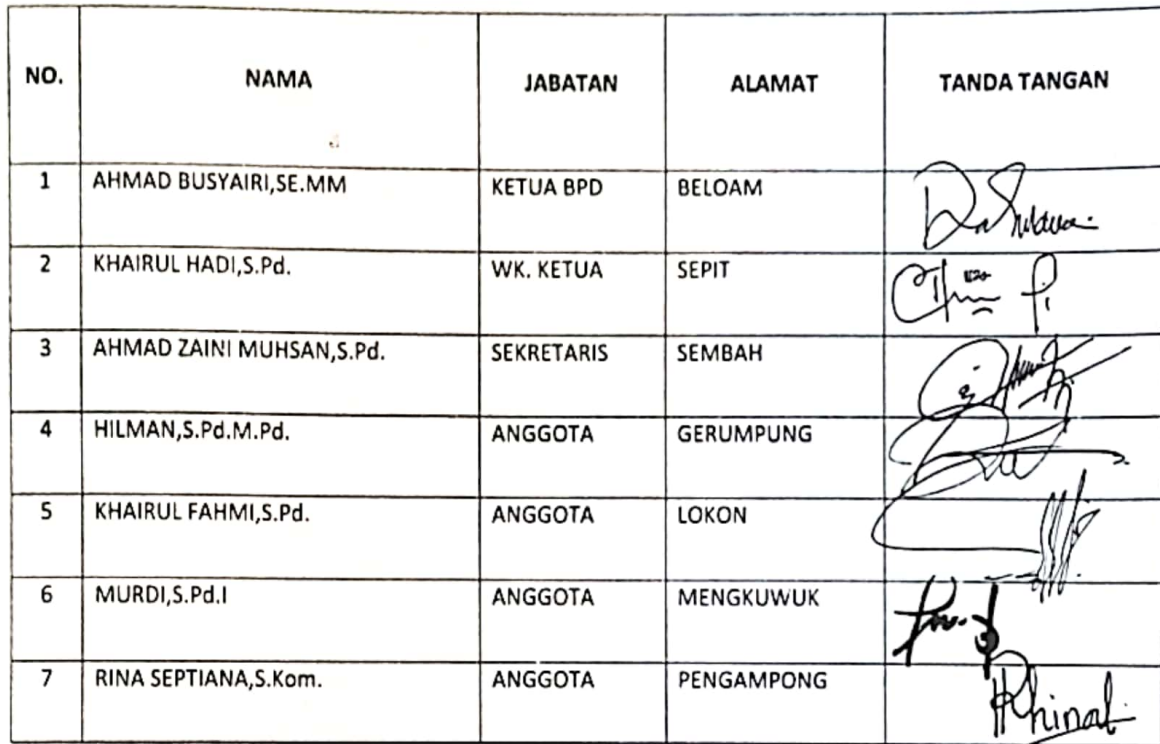 NO. NAMA JABATAN ALAMAT TANDA TANGAN
1 AHMAD BUSYAIRI,SE.MM KETUA BPD BELOAM
2 KHAIRUL HADI,S.Pd. WK. KETUA SEPIT
3 AHMAD ZAINI MUHSAN,S.Pd. SEKRETARIS SEMBAH
4 HILMAN,S.Pd.M.Pd. ANGGOTA GERUMPUNG
5 KHAIRUL FAHMI,S.Pd. ANGGOTA LOKON
6 MURDI,S.Pd.I ANGGOTA MENGKUWUK
7 RINA SEPTIANA,S.Kom. ANGGOTA PENGAMPONG